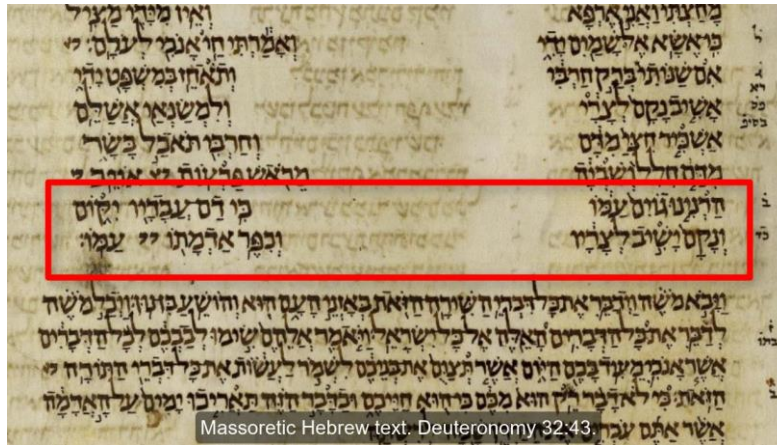 מָחַצְתִּי וַאֲנִי אֶרְפָּא וְאֵין מִיָּדִי מַצִּיל
כִּי אֶשָּׂא אֶל שָׁמַיִם יָדִי וְאָמַרְתִּי חַי אָנֹכִי לְעֹלָם׃
אִם שַׁנּוֹתִי בְּרַק חַרְבִּי וְתֹאחֵז בְּמִשְׁפָּט יָדִי
אָשִׁיב נָקָם לְצָרָי וְלִמְשַׂנְאַי אֲשַׁלֵּם
אַשְׁכִּיר חִצַּי מִדָּם וְחַרְבִּי תֹּאכַל בָּשָׂר
מִדַּם חָלָל וְשִׁבְיָה מֵרֹאשׁ פַּרְעוֹת אוֹיֵב
הַרְנִינוּ גוֹיִם עַמּוֹ כִּי דַם עֲבָדָיו יִקּוֹם
וְנָקָם יָשִׁיב לְצָרָיו וְכִפֶּר אַדְמָתוֹ עַמּוֹ׃
וַיָּבֹא מֹשֶׁה וַיְדַבֵּר אֶת כָּל דִּבְרֵי הַשִּׁירָה הַזֹּאת בְּאָזְנֵי הָעָם הוּא וְהוֹשֵׁעַ בִּן נוּן׃ וַיְכַל מֹשֶׁה
לְדַבֵּר אֶת כָּל הַדְּבָרִים הָאֵלֶּה אֶל כָּל יִשְׂרָאֵל׃ וַיֹּאמֶר אֲלֵהֶם שִׂימוּ לְבַבְכֶם לְכָל הַדְּבָרִים
אֲשֶׁר אָנֹכִי מֵעִיד בָּכֶם הַיּוֹם אֲשֶׁר תְּצַוֻּם אֶת בְּנֵיכֶם לִשְׁמֹר לַעֲשׂוֹת אֶת כָּל דִּבְרֵי הַתּוֹרָה
הַזֹּאת׃ כִּי לֹא דָבָר רֵק הוּא מִכֶּם כִּי הוּא חַיֵּיכֶם וּבַדָּבָר הַזֶּה תַּאֲרִיכוּ יָמִים עַל הָאֲדָמָה
אֲשֶׁר אַתֶּם עֹבְרִים
Massoretic Hebrew text. Deuteronomy 32:43.